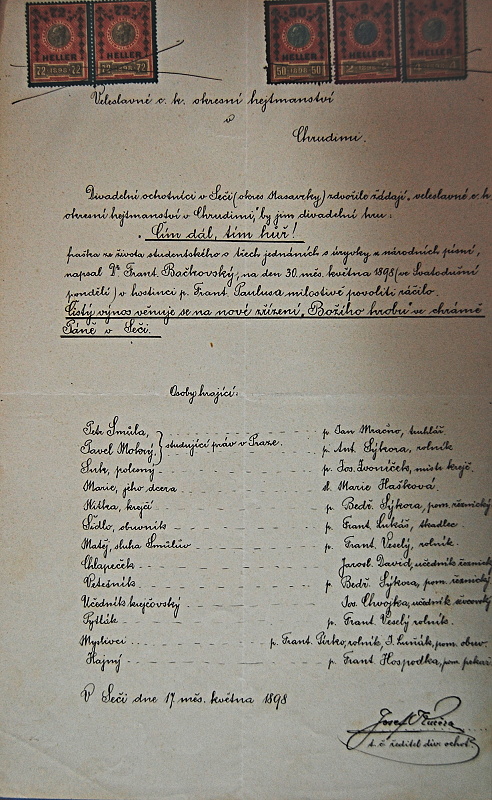 HELLER HELLER HELLER HELLER HELLER
72 1898 72 72 1898 72 50 1898 50
Veleslavné c. k. okresní hejtmanství
v
Chrudimi.
Divadelní ochotníci v Seči (okres Nasavrky) zdvořile žádají, veleslavné c. k.
okresní hejtmanství v Chrudimi, by jim divadelní hru:
„Čím dál, tím hůř!
fraška ze života studentského o třech jednáních s úryvky z národních písní,
napsal Dr. Frant. Bačkovský, na den 30. měs. května 1898 (ve Svatodušní
pondělí) v hostinci p. Frant. Paulusa milostivě povoliti ráčilo.
Čistý výnos věnuje se na nové zřízení „Božího hrobu" ve chrámě
Páně v Seči.
Osoby hrající:
Petr Šmůla, p. Jan Mračno, truhlář
Pavel Mokorý, } studující práv v Praze. p. Ant. Sýkora, rolník
Suk, polesný p. Jos. Zvoníček, mistr krejč.
Marie, jeho dcera sl. Marie Hašková
Nitka, krejčí p. Bedř. Sýkora, pom. řeznický
Šídlo, obuvník p. Frant. Lukáš, tkadlec
Matěj, sluha Šmůlův p. Frant. Veselý, rolník.
Chlapeček Jarosl. David, učedník řeznick
Vetešník p. Bedř. Sýkora, pom. řeznický
Učedník krejčovský Jos. Chvojka, učedník
Pytlák p. Frant. Veselý rolník.
Myslivci p. Frant. Pirko, rolník, J. Luňák, pom. obuv.
Hajný p. Frant Hospodka, pom. pekař
V Seči dne 17. měs. května 1898
Josef Kučera
t. č. ředitel div. ochot.